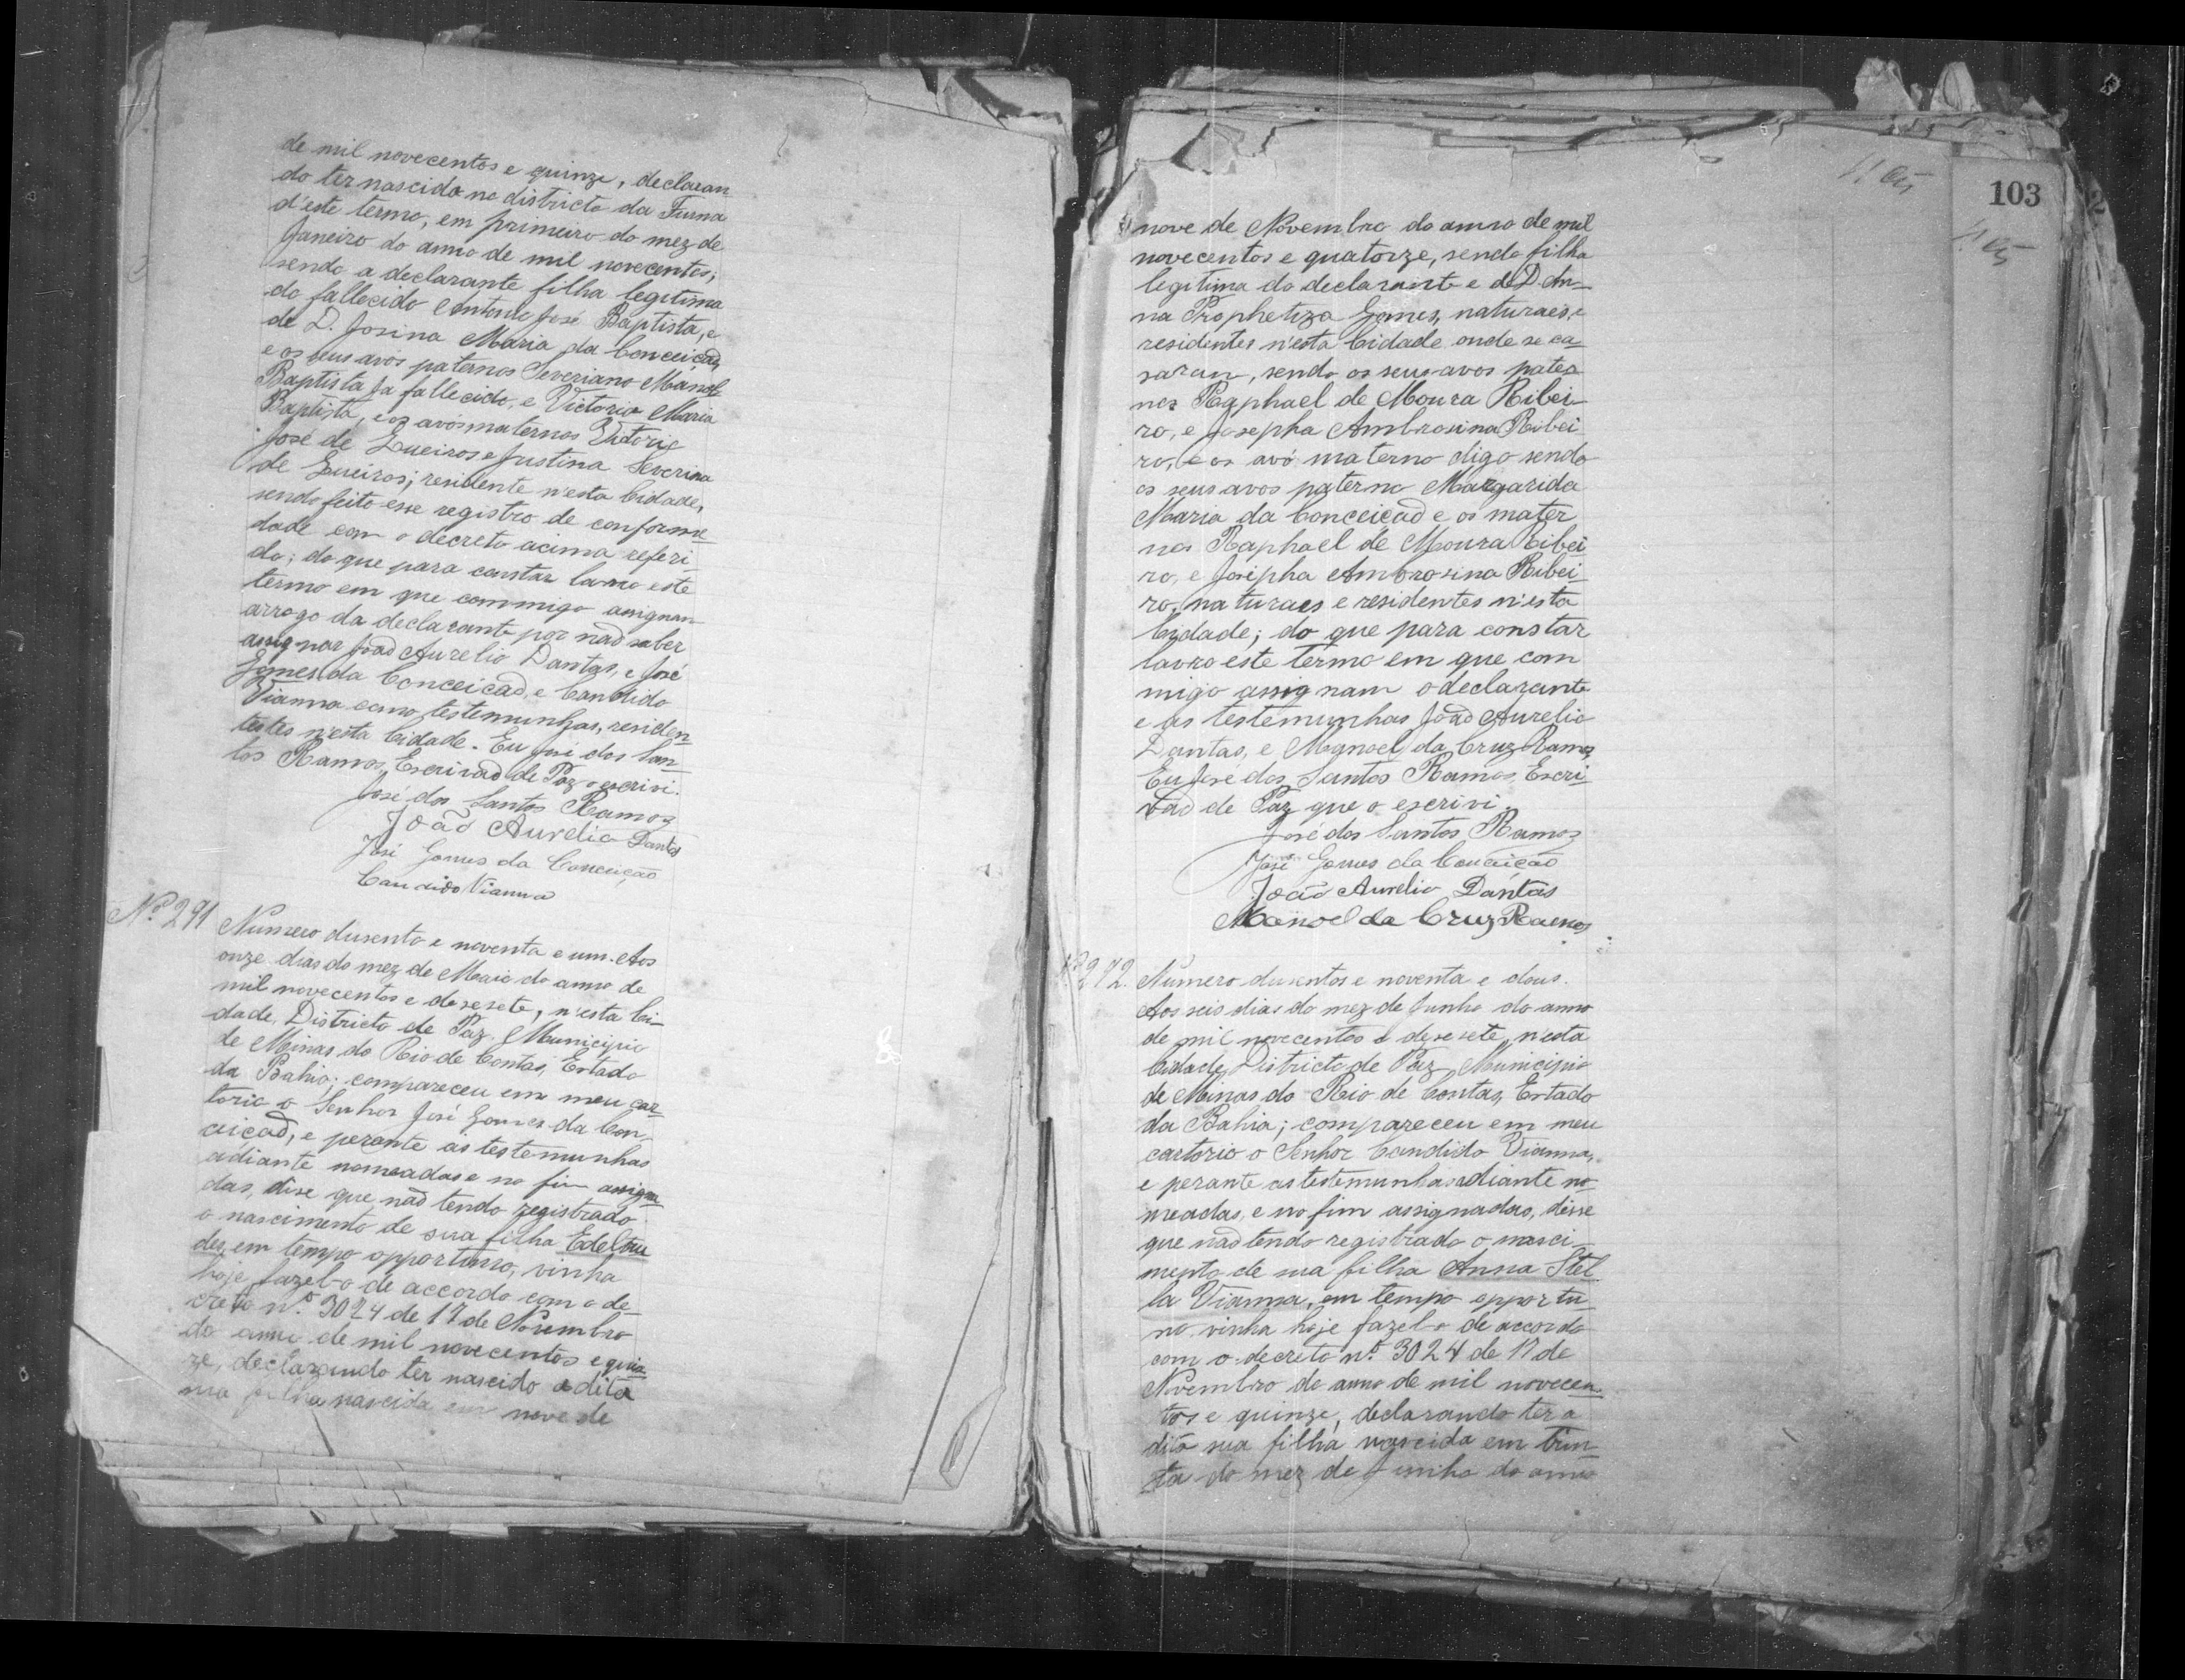 de mil novecentos e quinze, declaran
do ter nascido no districto da Furna
d'este termo, em primeiro do mez de
Janeiro do anno de mil novecentos;
sendo a declarante filha legitima
do fallecido Antonio José Baptista, e
de D. Josina Maria da Conceição,
e os seus avós paternos Severiano Manoel
Baptista já fallecido, e Victoria Maria
Baptista, e os avós maternos Victorio
José de Queiros e Justina Severina
de Queiros; residente n'esta Cidade,
sendo feito esse registro de conformi
dade com o decreto acima referi-
do; do que para constar lavro este
termo em que commigo assignam
arrogo da declarante por não saber
assignar João Aurelio Dantas, e José
Gomes da Conceição, e Candido
Vianna como testemunhas, residen
testes n'esta Cidade. Eu José dos San-
tos Ramos, Escrivão de Paz o escrivi.
José dos Santos Ramos
João Aurelio Dantas
José Gomes da Conceição
Candido Vianna
Nº 291
Numero dusento e noventa e um. Aos
onze dias do mez de Maio do anno de
mil novecentos e desesete, n'esta Ci-
dade, Districto de Paz, Municipio
de Minas do Rio de Contas, Estado
da Bahia; compareceu em meu car-
torio o Senhor José Gomes da Con-
ceição, e perante as testemunhas
adiante nomeadas e no fim assigna
das, disse que não tendo registrado
o nascimento de sua filha Edeltru
des, em tempo opportuno, vinha
hoje fazel-o de accordo com o de-
creto nº 3024 de 17 de Novembro
do anno de mil novecentos e quin
ze, declarando ter nascido a dita
sua filha nascida em nove de
103
nove de Novembro do anno de mil
novecentos e quatorze, sendo filha
legitima do declarante e de D. An-
na Prophetiza Gomes, naturaes, e
residentes n'esta Cidade onde se ca-
saran, sendo os seus avos pater
nos Raphael de Moura Ribei-
ro, e Josepha Ambrosina Ribei
ro, e os avó materno digo sendo
os seus avos paterno Margarida
Maria da Conceição e os mater
nos Raphael de Moura Ribei
ro, e Josepha Ambrosina Ribei-
ro, naturaes e residentes n'esta
Cidade; do que para constar
lavro este termo em que com
migo assignam o declarante
e as testemunhas João Aurelio
Dantas, e Manoel da Cruz Ramos,
Eu José dos Santos Ramos, Escri-
vão de Paz que o escrivi.
José dos Santos Ramos
José Gomes da Conceição
João Aurelio Dantas
Manoel da Cruz Ramos
Nº 292.
Numero dusentos e noventa e dous.
Aos seis dias do mez de Junho do anno
de mil novecentos e desesete, n'esta
Cidade, Districto de Paz, Municipio
de Minas do Rio de Contas, Estado
da Bahia; compareceu em meu
cartorio o Senhor Candido Vianna,
e perante as testemunhas adiante no-
meadas, e no fim assignadas, disse
que não tendo registrado o nasci-
mento de sua filha Anna Stel
la Vianna, em tempo opportu-
no, vinha hoje fazel-o de accordo
com o decreto nº 3024 de 17 de
Novembro de anno de mil novecen
tos e quinze, declarando ter a
dita sua filha nascida em trin-
ta do mez de Junho do anno